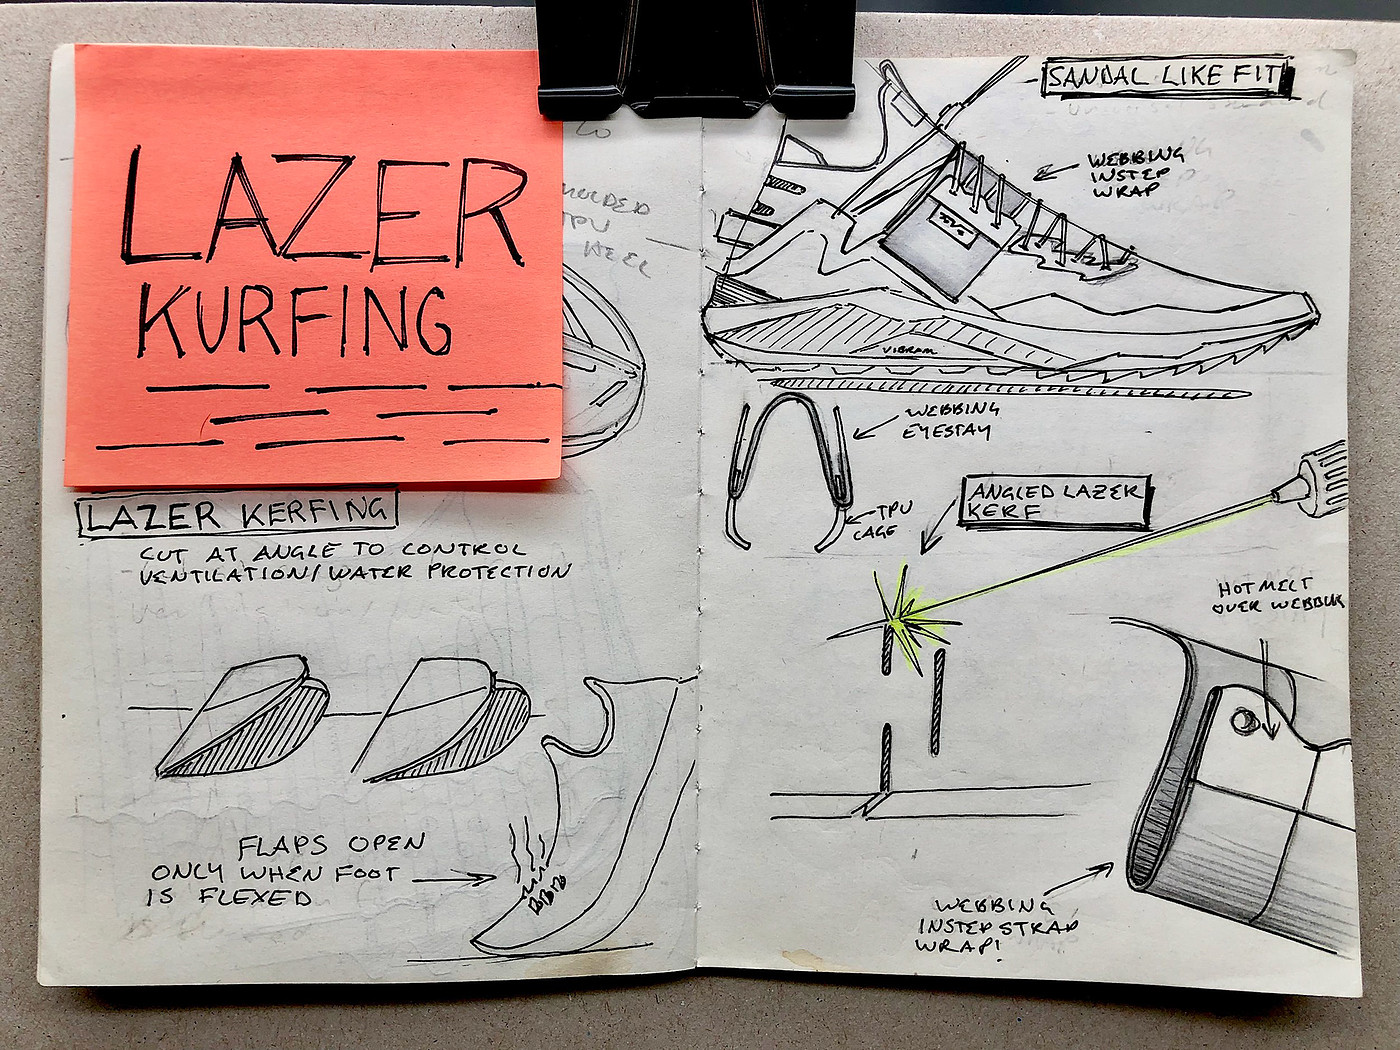 LAZER
KURFING
MOLDED
TPU
HEEL
LAZER KERFING
CUT AT ANGLE TO CONTROL
VENTILATION/WATER PROTECTION
FLAPS OPEN
ONLY WHEN FOOT
IS FLEXED
SANDAL LIKE FIT
WEBBING
INSTEP
WRAP
VIBRAM
WEBBING
EYESTAY
TPU
CAGE
ANGLED LAZER
KERF
HOT MELT
OVER WEBBING
WEBBING
INSTEP STRAP
WRAP!